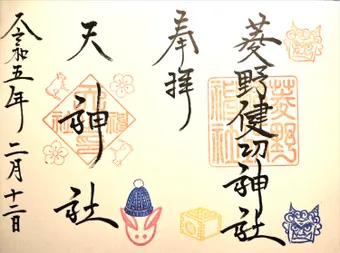 菱野健功神社
奉拝
天神社
令和五年 二月十二日